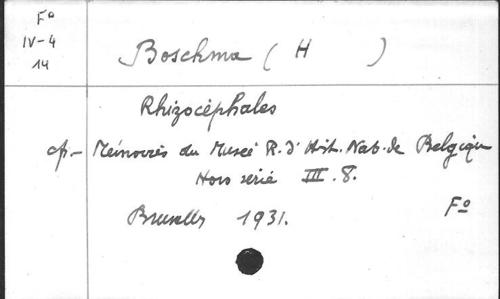 Fº
IV-4
14
Boschma (H )
Rhizocéphales
cfr.- Mémoires du Museé R. d'Hist. Nat. de Belgique
Hors série III. 8.
Fº
Bruxelles 1931.